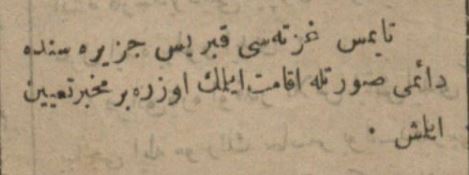 تايمس غزته‌سى قبريس جزيره سنده
دائمى صورتله اقامت ايلمك اوزره بر مخبر تعيين
ايلمش .